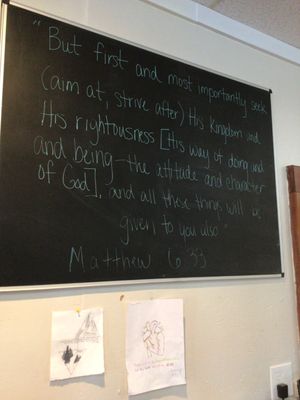 "But first and most importantly seek
(aim at, strive after) His Kingdom and
His rightousness [His way of doing and
and being—the attitude and character
of God], and all these things will be
given to you also"
Matthew 6 33